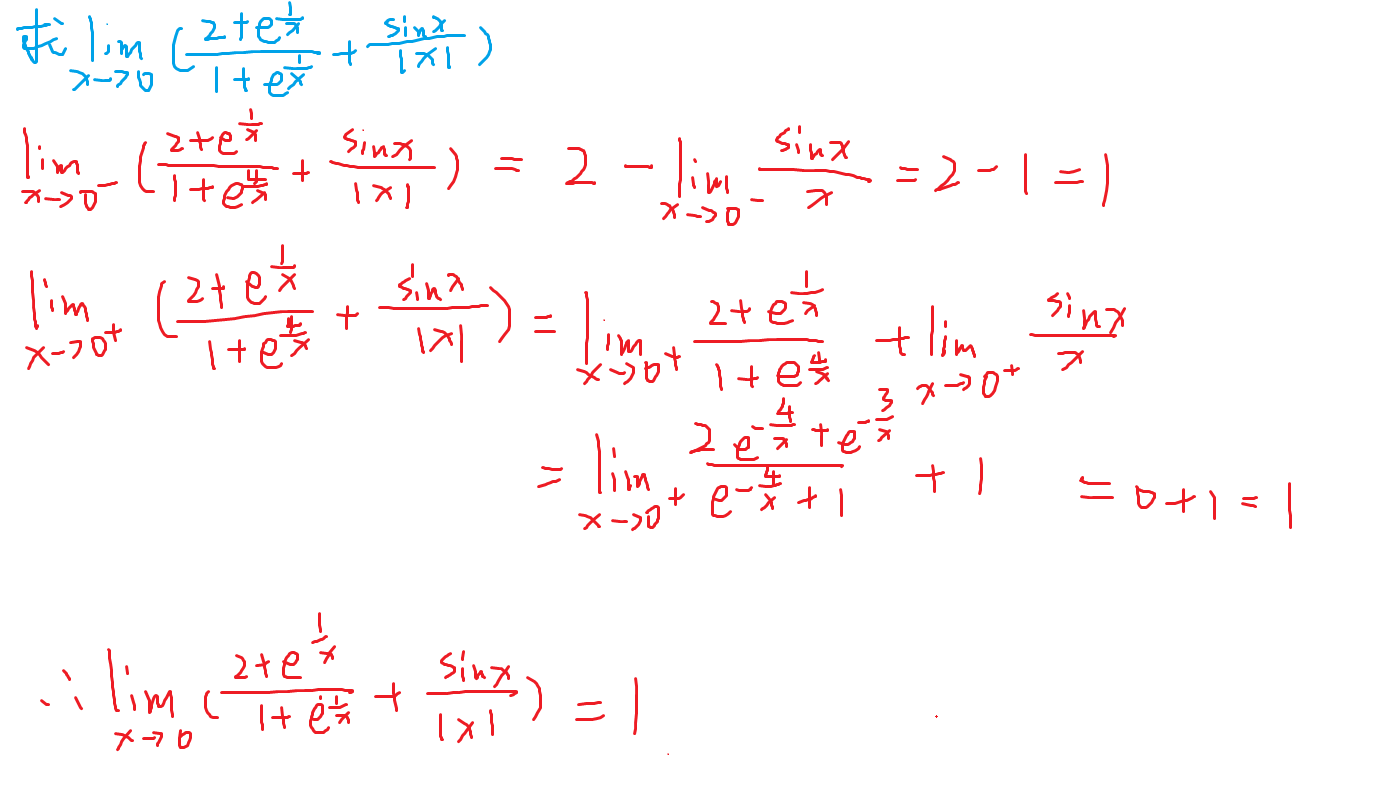 求 lim_{x→0} (\frac{2+e^{\frac{1}{x}}}{1+e^{\frac{1}{x}}} + \frac{sinx}{|x|})
lim_{x→0^-} (\frac{2+e^{\frac{1}{x}}}{1+e^{\frac{4}{x}}} + \frac{sinx}{|x|}) = 2 - lim_{x→0^-} \frac{sinx}{x} = 2 - 1 = 1
lim_{x→0^+} (\frac{2+e^{\frac{1}{x}}}{1+e^{\frac{4}{x}}} + \frac{sinx}{|x|}) = lim_{x→0^+} \frac{2+e^{\frac{1}{x}}}{1+e^{\frac{4}{x}}} + lim_{x→0^+} \frac{sinx}{x}
= lim_{x→0^+} \frac{2e^{-\frac{4}{x}}+e^{-\frac{3}{x}}}{e^{-\frac{4}{x}}+1} + 1 = 0+1 = 1
∴ lim_{x→0} (\frac{2+e^{\frac{1}{x}}}{1+e^{\frac{1}{x}}} + \frac{sinx}{|x|}) = 1